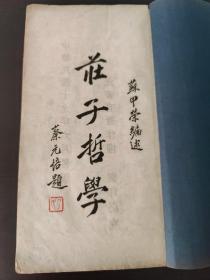 蘇甲榮編述
莊子哲學
蔡元培題